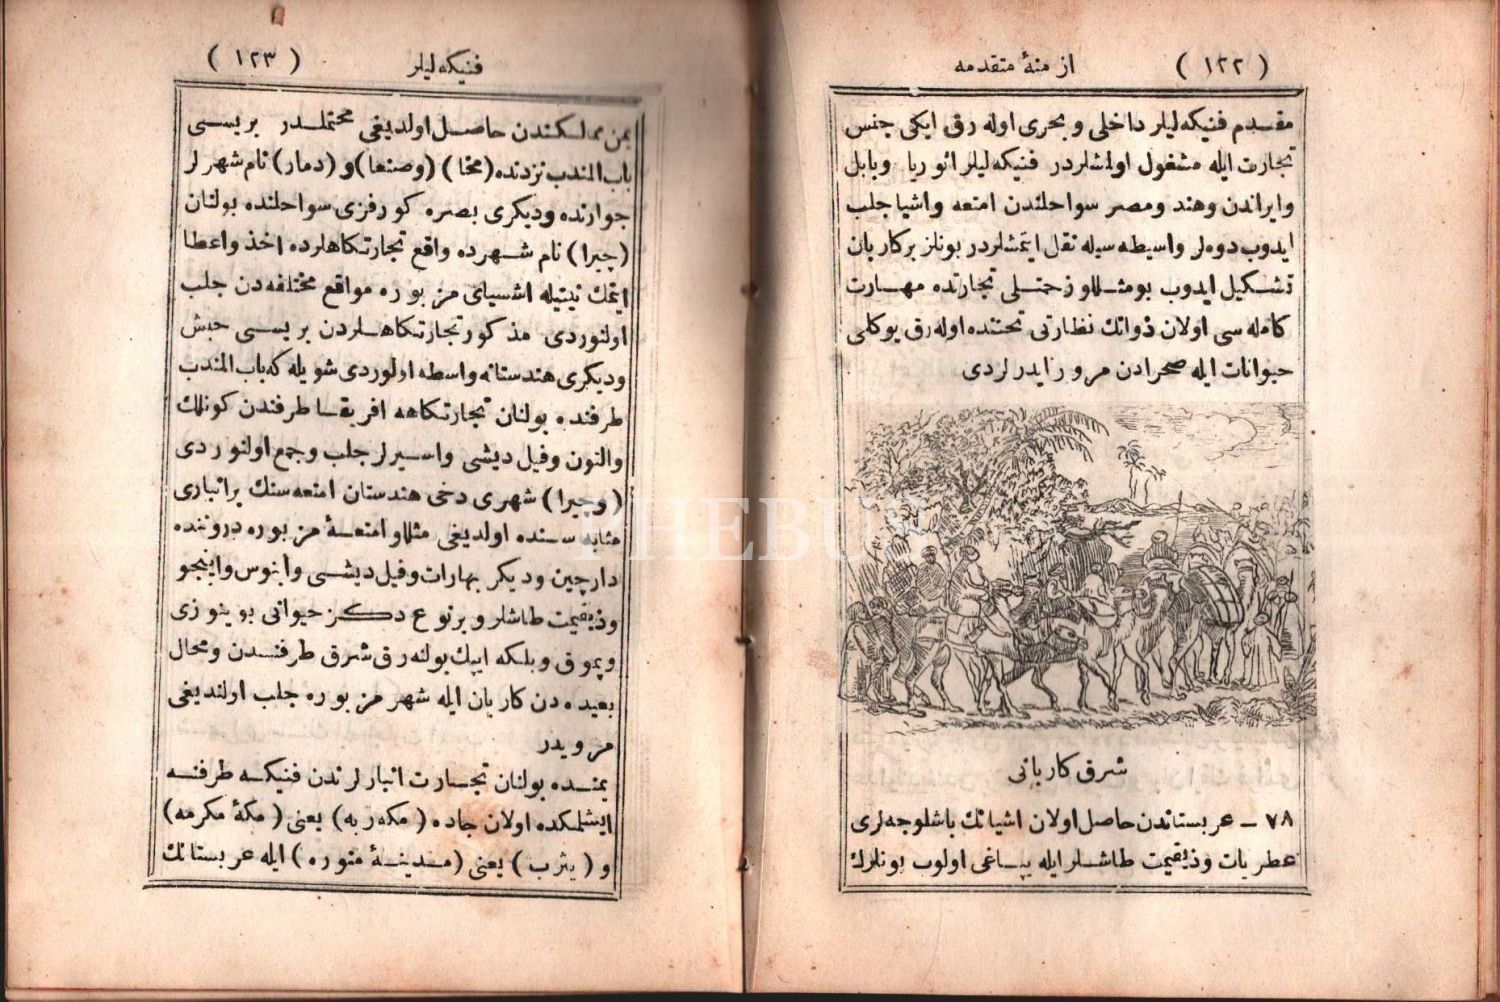 ( ١٢٢ ) ازمنهٔ متقدمه
مقدم فنیکه‌لیلر داخلی و بحری اوله‌رق ایکی جنس
تجارت ایله مشغول اولمشلردر فنیکه‌لیلر اثوریا وبابل
وایراندن وهند ومصر سواحلندن امتعه واشیا جلب
ایدوب دوه‌لر واسیطه‌سیله نقل ایتمشلردر بونلر برکاربان
تشکیل ایدوب بومثللو زحمتلی تجارتده مهارت
کامله‌سی اولان ذواتك نظارتی تحتنده اوله‌رق یوکلی
حیوانات ایله صحرادن مرور ایدرلردی
شرق کاربانی
٧٨ ـ عربستاندن حاصل اولان اشیانك باشلوجه‌لری
عطریات وذیقیمت طاشلر ایله یپاغی اولوب بونلرك
فنیکه‌لیلر ( ١٢٣ )
یمن مملکتندن حاصل اولدیغی محتملدر بریسی
باب‌المندب نزدنده (مخا) (وصنعا) و (دمار) نام شهرلر
جوارنده ودیکری بصره کورفزی سواحلنده بولنان
(جیرا) نام شهرده واقع تجارتکاهلرده اخذ واعطا
ایتمك نیتیله اشیای مزبوره مواقع مختلفه‌دن جلب
اولنوردی مذکور تجارتکاهلردن بریسی حبش
ودیکری هندستانه واسطه اولوردی شویله که باب‌المندب
طرفنده بولنان تجارتکاهه افریقا طرفندن کونلك
والتون وفیل دیشی واسیرلر جلب وجمع اولنوردی
(وجیرا) شهری دخی هندستان امتعه‌سنك برانباری
مثابه‌سنده اولدیغی مثللو امتعهٔ مزبوره دروننده
دارچین ودیکر بهارات وفیل دیشی وآبنوس واینجو
وذیقیمت طاشلر وبرنوع دکز حیوانی بوینوزی
وپموق وبلکه ایپك بولنه‌رق شرق طرفندن ومحال
بعیده‌دن کاربان ایله شهر مزبوره جلب اولندیغی
مرویدر
یمنده بولنان تجارت انبارلرندن فنیکه طرفنه
ایشلمکده اولان جاده (مکه‌ربه) یعنی (مکهٔ مکرمه)
و (یثرب) یعنی (مدینهٔ منوره) ایله عربستانك
PHEBUS